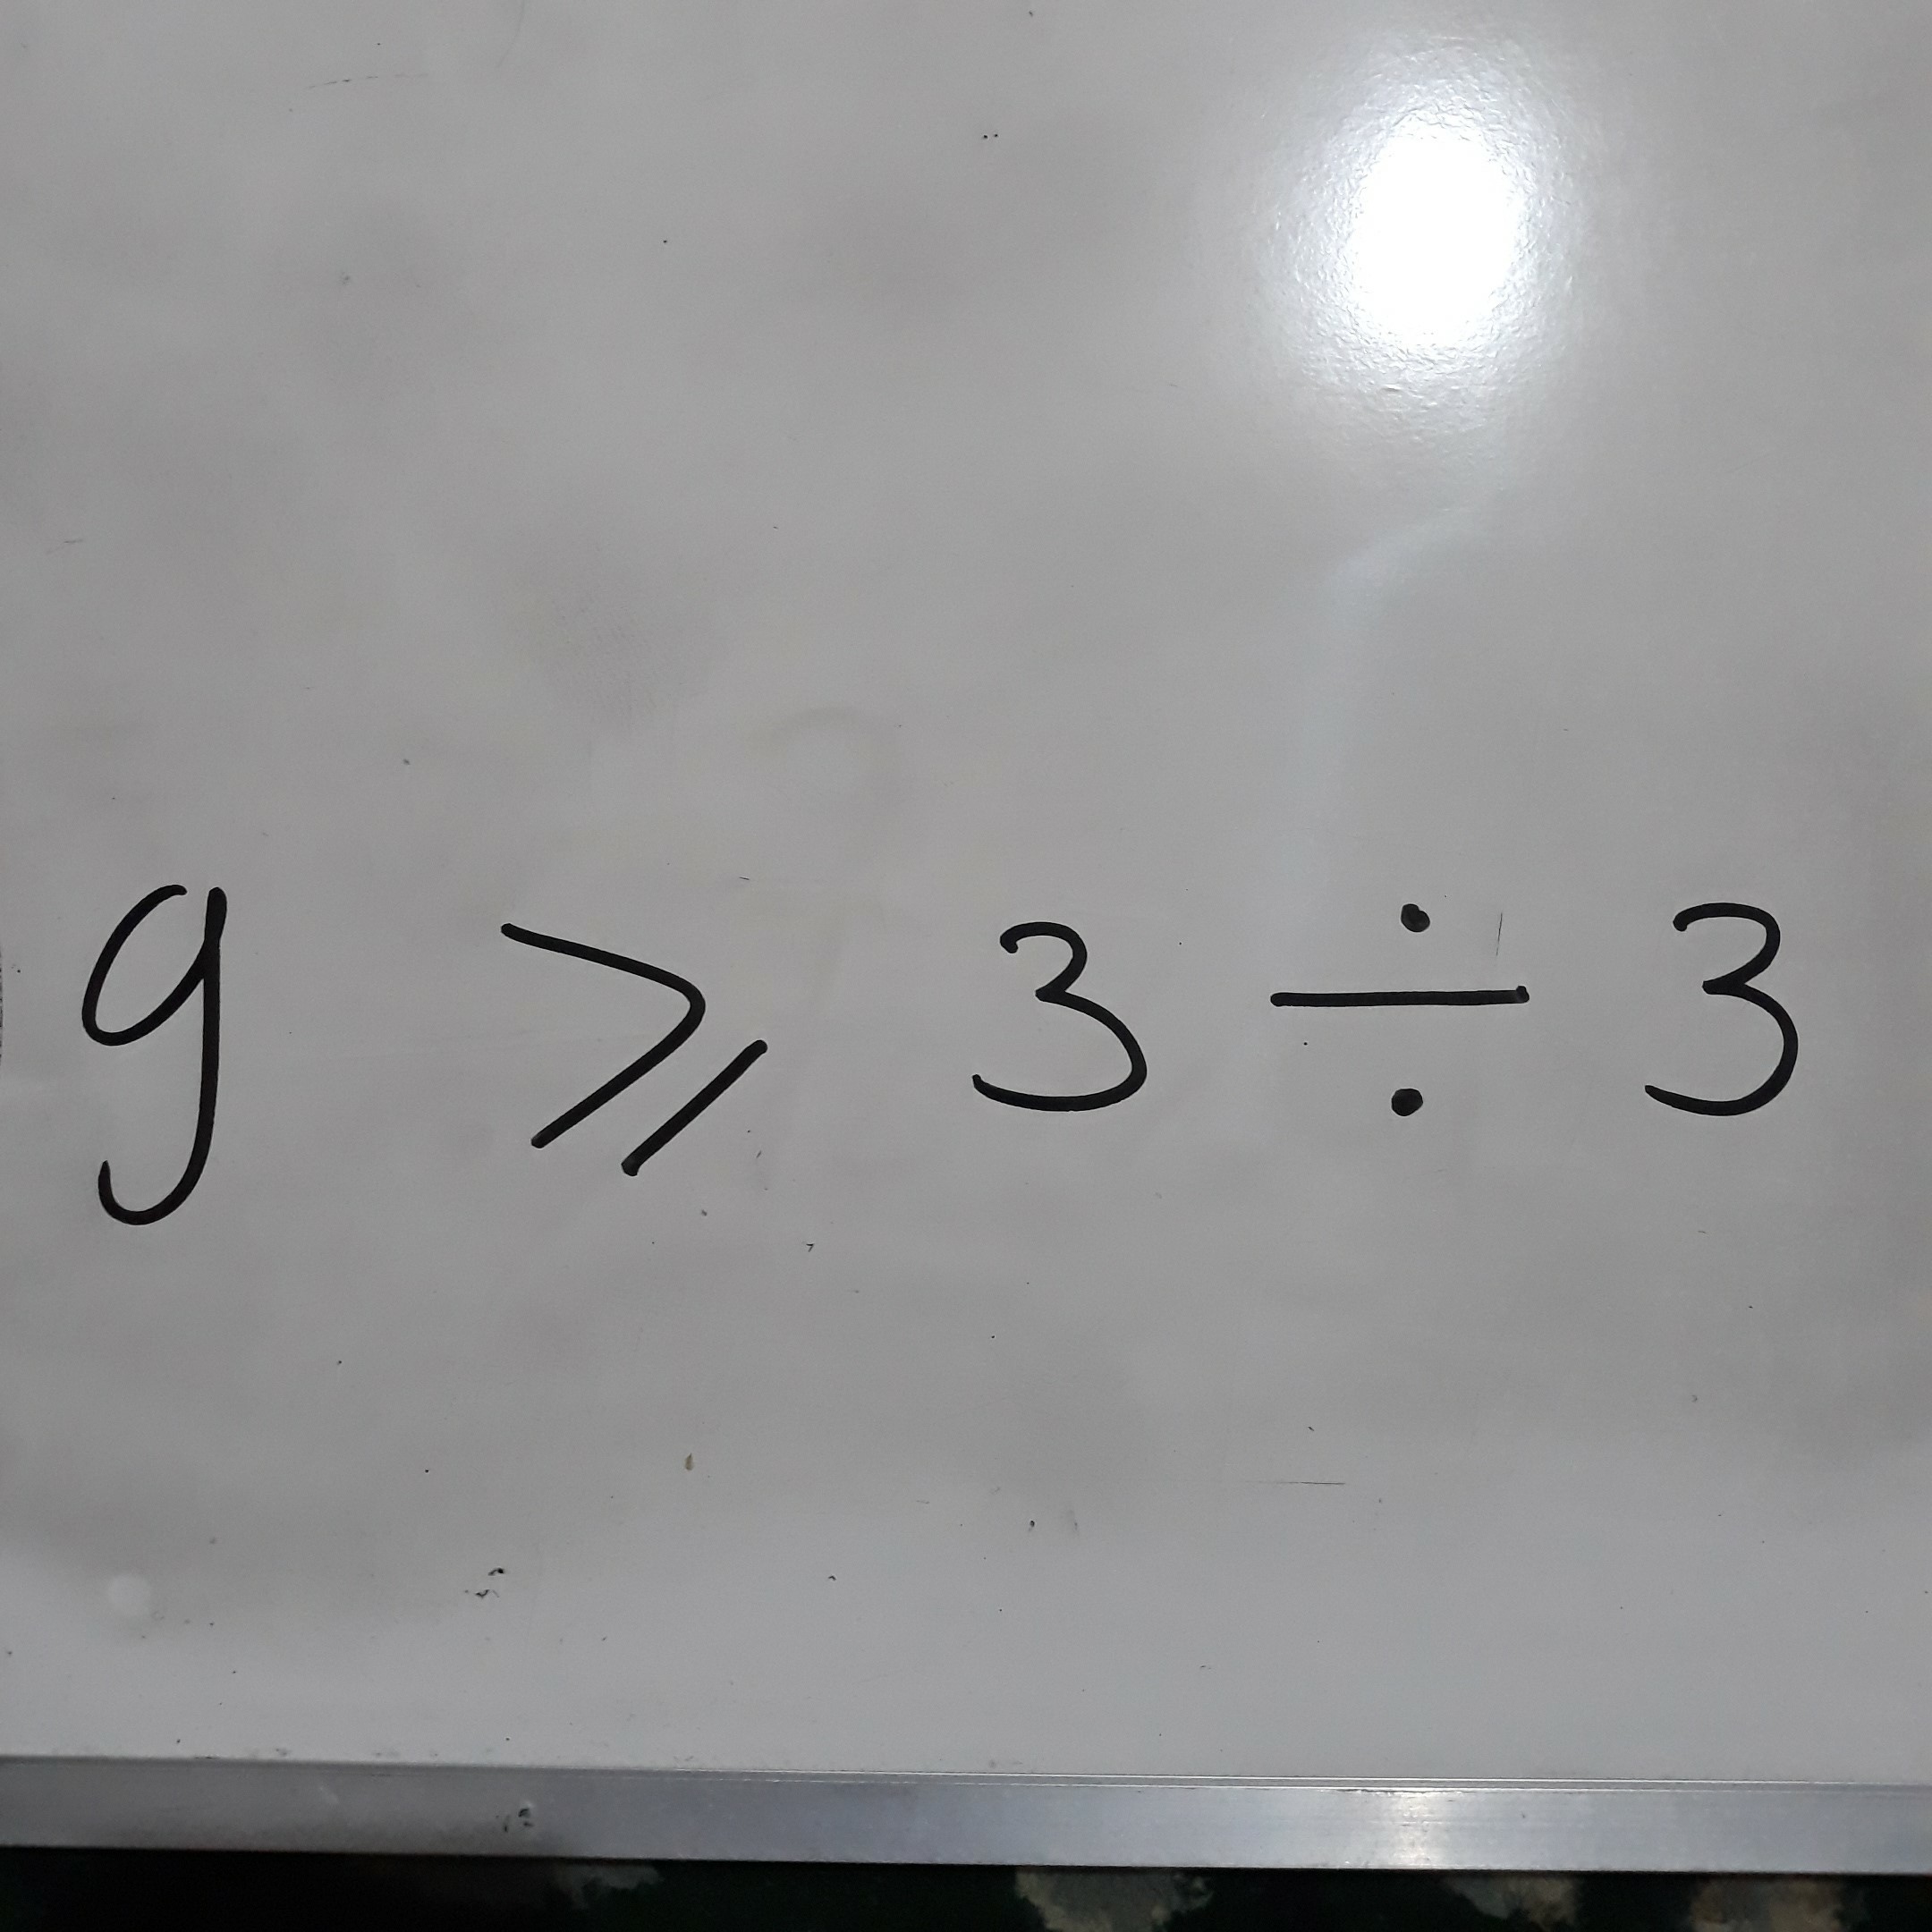 g ⩾ 3 ÷ 3